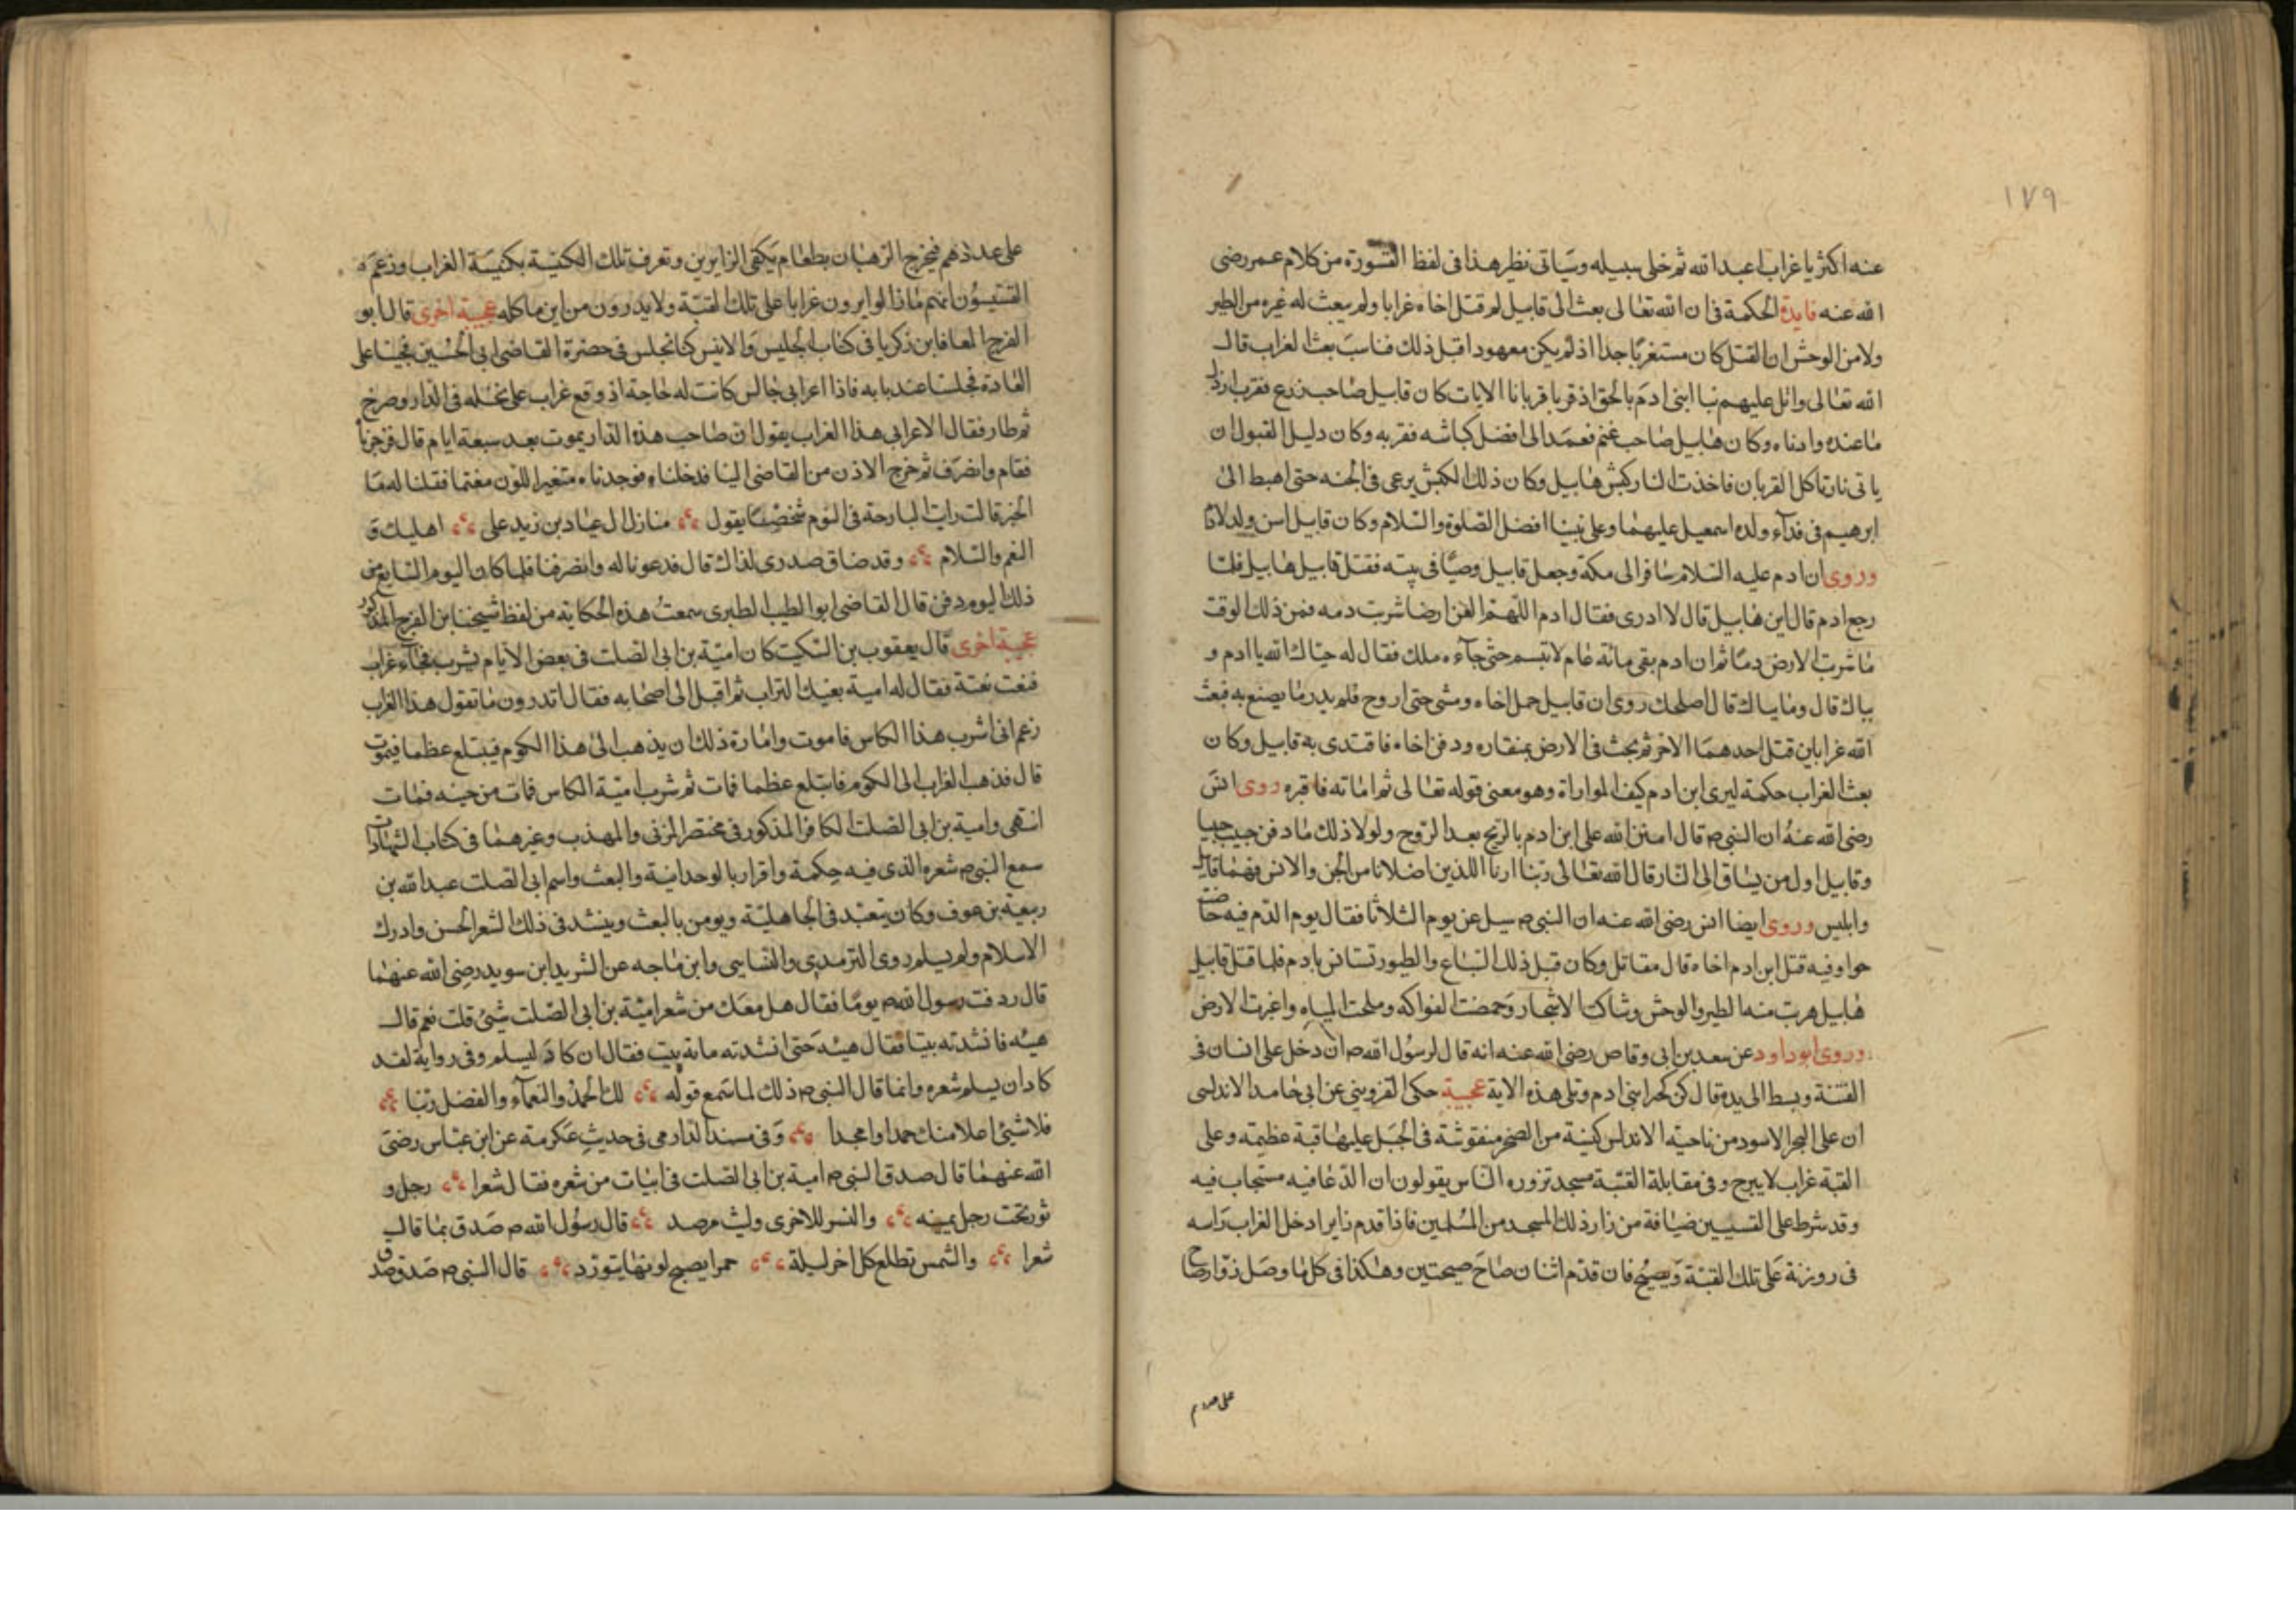 ١٧٩
عنه اكثر يا غراب اعبد الله ثم خلى سبيله وسياتى نظير هذا فى لفظ القسورة من كلام عمر رضى
الله عنه فايدة الحكمة فى ان الله تعالى بعث الى قابيل لم قتل اخاه غرابا ولم يبعث له غيره من الطير
ولا من الوحش ان القتل كان مستغربا جدا اذ لم يكن معهودا قبل ذلك فناسب بعث الغراب قال
الله تعالى واتل عليهم نبا ابنى ادم بالحق اذ قربا قربانا الايات كان قابيل صاحب زرع فقرب ارذل
ما عنده وادناه وكان هابيل صاحب غنم فعمد الى افضل كباشه فقربه وكان دليل القبول ان
ياتى نار تاكل القربان فاخذت النار كبش هابيل وكان ذلك الكبش يرعى فى الجنه حتى اهبط الى
ابرهيم فى فدآء ولده اسمعيل عليهما وعلى نبينا افضل الصلوة والسلام وكان قابيل اسن ولد لادم
وروى ان ادم عليه السلام سافر الى مكة وجعل قابيل وصيا فى بيته فقتل قابيل هابيل فلما
رجع ادم قال اين هابيل قال لا ادرى فقال ادم اللهم العن ارضا شربت دمه فمن ذلك الوقت
ما شربت الارض دما ثم ان ادم بقى مائة عام لا تبسم حتى جآءه ملك فقال له حياك الله يا ادم و
بياك قال وما بياك قال اضحك روى ان قابيل حمل اخاه ومشى حتى اروح فلم يدر ما يصنع به فبعث
الله غرابين قتل احدهما الاخر ثم بحث فى الارض بمنقاره ودفن اخاه فاقتدى به قابيل وكان
بعث الغراب حكمة ليرى ابن ادم كيف المواراة وهو معنى قوله تعالى ثم اماته فاقبره روى انس
رضى الله عنه ان النبى ص قال امتن الله على ابن ادم بالريح بعد الروح ولولا ذلك ما دفن حبيب حبيبا
وقابيل اول من يساق الى النار قال الله تعالى ربنا ارنا اللذين اضلانا من الجن والانس فهما قابيل
وابليس وروى ايضا انس رضى الله عنه ان النبى ص سيل عن يوم الثلاثا فقال يوم الدم فيه حاضت
حوا وفيه قتل ابن ادم اخاه قال مقاتل وكان قبل ذلك السباع والطيور تستانس بادم فلما قتل قابيل
هابيل هربت منه الطير والوحش وشاكت الاشجار وحمضت الفواكه وملحت المياه واغبرت الارض
وروى ابو داود عن سعد بن ابى وقاص رضى الله عنه انه قال لرسول الله ص ان دخل على انسان فى
الفتنة وبسط الى يده قال كن كخير ابنى ادم وتلى هذه الاية عجيبة حكى القزوينى عن ابى حامد الاندلسى
ان على البحر الاسود من ناحية الاندلس كنيسة من الصخر منقوشة فى الجبل عليها قبة عظيمة وعلى
القبة غراب لا يبرح وفى مقابلة القبة مسجد تزوره الناس يقولون ان الدعا فيه مستجاب فيه
وقد شرط على القسيسين ضيافة من زار ذلك المسجد من المسلمين فاذا قدم زاير ادخل الغراب راسه
فى روزنة على تلك القبة ويصيح فان قدم اثنان صاح صيحتين وهكذا فى كل ما وصل زوار صاح
على عددهم فيخرج الرهبان بطعام يكفى الزايرين وتعرف تلك الكنيسة بكنيسة الغراب وزعم
القسيسون انهم ما زالوا يرون غرابا على تلك القبة ولا يدرون من اين ماكله عجيبة اخرى قال ابو
الفرج المعافا بن زكريا فى كتاب الجليس والانيس كنا نجلس فى حضرة القاضى ابى الحسين فجئنا على
العادة فجلسنا عند بابه فاذا اعرابى جالس كانت له حاجة اذ وقع غراب على نخله فى الدار وصرخ
ثم طار فقال الاعرابى هذا الغراب يقول ان صاحب هذه الدار يموت بعد سبعة ايام قال فزجرنا
فقام وانصرف ثم خرج الاذن من القاضى الينا فدخلناه فوجدناه متغير اللون مغتما فقلنا له ما
الخبر قالت رايت البارحة فى النوم شخصا يقول منازل ال عباد بن زيد على اهليك و
الغم والسلام وقد ضاق صدرى لذاك قال فدعونا له وانصرفنا فلما كان اليوم السابع من
ذلك اليوم دفن قال القاضى ابو الطيب الطبرى سمعت هذه الحكاية من لفظ شيخنا ابن الفرج المذكور
عجيبة اخرى قال يعقوب بن السكيت كان امية بن ابى الصلت فى بعض الايام يشرب فجآء غراب
فنعت نعتة فقال له امية بفيك التراب ثم اقبل الى اصحابه فقال اتدرون ما تقول هذا الغراب
زعم انى اشرب هذا الكاس فاموت وامارة ذلك ان يذهب الى هذا الكوم فيبتلع عظما فيموت
قال فذهب الغراب الى الكوم فابتلع عظما فمات ثم شرب امية الكاس فمات من حينه فمات
انتهى وامية بن ابى الصلت الكافر المذكور فى مختصر المزنى والمهذب وغيرهما فى كتاب الشهادات
سمع النبى ص شعره الذى فيه حكمة واقرار بالوحدانية والبعث واسم ابى الصلت عبد الله بن
ربيعة بن عوف وكان يتعبد فى الجاهلية ويومن بالبعث وينشد فى ذلك الشعر الحسن وادرك
الاسلام ولم يسلم روى الترمدى والنسايى وابن ماجه عن الشريد ابن سويد رضى الله عنهما
قال ردفت رسول الله ص يوما فقال هل معك من شعر امية بن ابى الصلت شىئ قلت نعم قال
هيه فانشدته بيتا فقال هيه حتى انشدته ماية بيت فقال ان كاد ليسلم وفى رواية لقد
كاد ان يسلم شعره وانما قال النبى ص ذلك لما سمع قوله لك الحمد والنعمآء والفضل ربنا
فلا شيئ اعلا منك حمدا وامجدا وفى مسند الدارمى فى حديث عكرمة عن ابن عباس رضى
الله عنهما قال صدق النبى ص امية بن ابى الصلت فى ابيات من شعره فقال شعرا رجل و
ثور تحت رجل يمينه والنسر للاخرى وليث مرصد قال رسول الله ص صدق بما قال
شعرا والشمس تطلع كل اخر ليلة حمرا يصبح لونها يتورد قال النبى ص صدق صدق